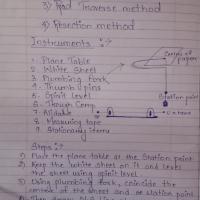 3) Rad Traverse method
4) Resection method
Instruments :-
1. Plane Table
2. White Sheet
3. Plumbing fork
4. Thumb pins
5. Spirit Level
6. Trough Comp
7. Alidade
8. Measuring tape
9. Stationary items
Centre of paper
Station point
Steps :-
1) Place the plane table at the Station point
2) Keep the white sheet on it and level
the sheet using spirit level
3) Using plumbing fork, coincide the
centre of the sheet and or station point